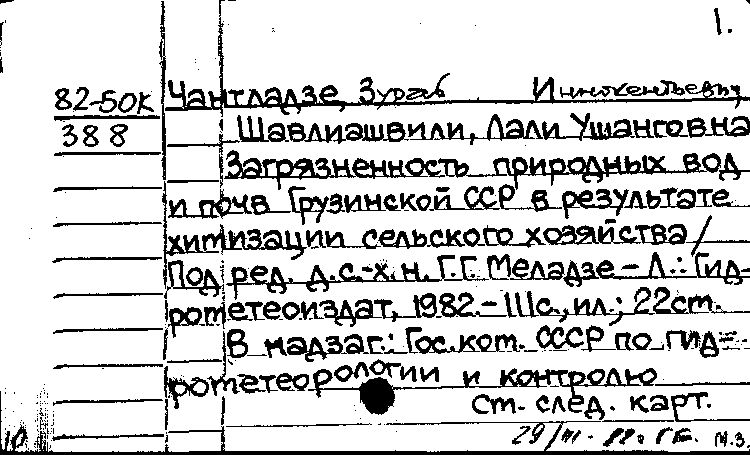 1.
82-50К Чантладзе, Зураб Иннокентьевич,
388 Шавлиашвили, Лали Ушанговна
Загрязненность природных вод
и почв Грузинской ССР в результате
химизации сельского хозяйства /
Под ред. д.с.-х.н. Г.Г. Меладзе – Л.: Гид-
рометеоиздат, 1982. – 111с., ил.; 22см.
В надзаг.: Гос. ком. СССР по гид-
рометеорологии и контролю
см. след. карт.
10
М.З.